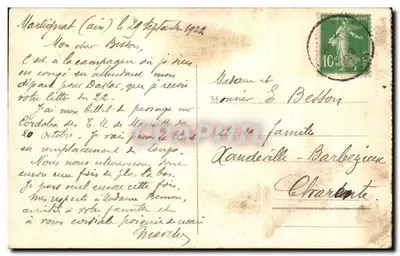 Martignat (ain) le 29 Septembre 1922
Mon cher Besson,
C'est à la campagne où je suis
en congé en attendant mon
départ pour Dakar, que je reçois
votre lettre du 22.
J'ai mon billet de passage sur
Cordoba des T. M. de Marseille du
20 octobre. Je vais
en remplacement de Loups.
Nous nous retrouverons donc
encore une fois de plus là bas.
Je pars seul encore cette fois.
Mes respects à Madame Besson,
amitiés à votre famille et
à vous cordiale poignée de main
10
Madame et
Monsieur E Besson
et sa famille
Xandeville - Barbezieux
Charente